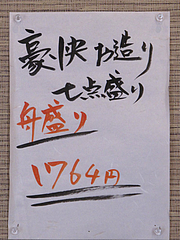 豪快お造り
七点盛り
舟盛り
1764円